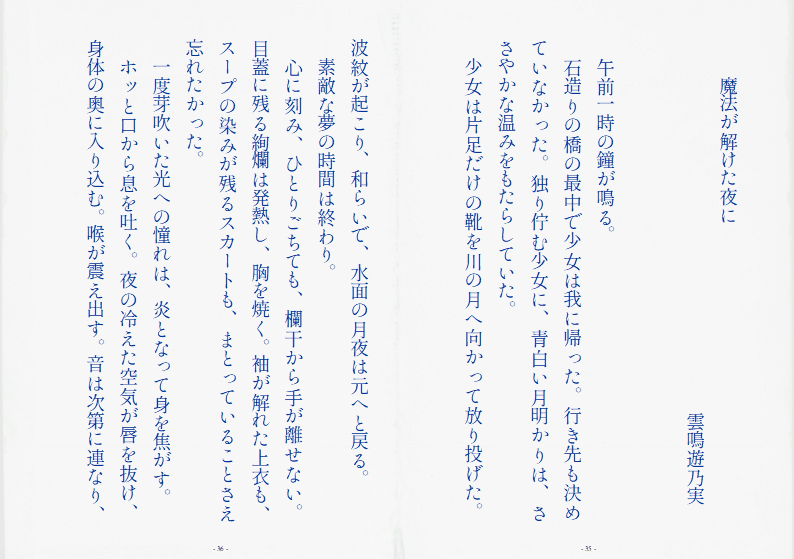 魔法が解けた夜に
雲鳴遊乃実
午前一時の鐘が鳴る。
石造りの橋の最中で少女は我に帰った。行き先も決め
ていなかった。独り佇む少女に、青白い月明かりは、さ
さやかな温みをもたらしていた。
少女は片足だけの靴を川の月へ向かって放り投げた。
- 35 -
波紋が起こり、和らいで、水面の月夜は元へと戻る。
素敵な夢の時間は終わり。
心に刻み、ひとりごちても、欄干から手が離せない。
目蓋に残る絢爛は発熱し、胸を焼く。袖が解れた上衣も、
スープの染みが残るスカートも、まとっていることさえ
忘れたかった。
一度芽吹いた光への憧れは、炎となって身を焦がす。
ホッと口から息を吐く。夜の冷えた空気が唇を抜け、
身体の奥に入り込む。喉が震え出す。音は次第に連なり、
- 36 -